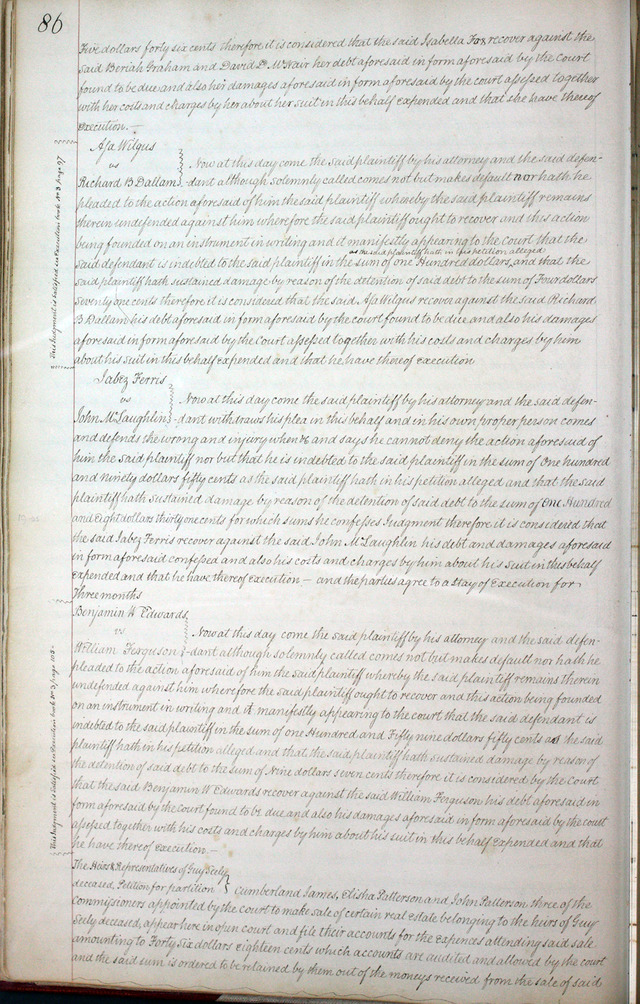 86
Five dollars forty six cents therefore it is considered that the said Isabella Fox recover against the
Said Beriah Graham and David D. McNair her debt aforesaid in form aforesaid by the court
found to be due and also her damages aforesaid in form aforesaid by the court assessed together
with her costs and charges by her about her suit in this behalf expended and that she have thereof
execution.
Asa Wilgus
vs
Now at this day come the said plaintiff by his attorney and the said defen-
Richard B Dallam -dant although solemnly called comes not but makes default nor hath he
pleaded to the action aforesaid of him the said plaintiff whereby the said plaintiff remains
therein undefended against him wherefore the said plaintiff ought to recover and this action
being founded on an instrument in writing and it manifestly appearing to the court that the
as the said plaintiff hath in his petition alleged
said defendant is indebted to the said plaintiff in the sum of one Hundred dollars, and that the
said plaintiff hath sustained damage by reason of the detention of said debt to the sum of Four dollars
Seventy one cents therefore it is considered that the said Asa Wilgus recover against the said Richard
B Dallam his debt aforesaid in form aforesaid by the court found to be due and also his damages
aforesaid in form aforesaid by the Court assessed together with his costs and charges by him
about his suit in this behalf expended and that he have thereof execution
This Judgment is satisfied in Execution book No 3 page 97
Jabez Ferris
vs
Now at this day come the said plaintiff by his attorney and the said defen-
John McLaughlin -dant withdraws his plea in this behalf and in his own proper person comes
and defends the wrong and injury when &c and says he cannot deny the action aforesaid of
him the said plaintiff nor but that he is indebted to the said plaintiff in the sum of One hundred
and ninety dollars fifty cents as the said plaintiff hath in his petition alleged and that the said
plaintiff hath sustained damage by reason of the detention of said debt to the sum of One Hundred
and Eight dollars thirty one cents for which sums he confesses Judgment therefore it is considered that
the said Jabez Ferris recover against the said John McLaughlin his debt and damages aforesaid
in form aforesaid confessed and also his costs and charges by him about his Suit in this behalf
Expended and that he have thereof execution — and the parties agree to a Stay of Execution for
Three months
Benjamin W Edwards
vs
Now at this day come the said plaintiff by his attorney and the said defen-
William Ferguson -dant although solemnly called comes not but makes default nor hath he
pleaded to the action aforesaid of him the said plaintiff whereby the said plaintiff remains therein
undefended against him wherefore the said plaintiff ought to recover and this action being founded
on an instrument in writing and it manifestly appearing to the court that the said defendant is
indebted to the said plaintiff in the sum of one Hundred and Fifty nine dollars fifty cents as the said
plaintiff hath in his petition alleged and that the said plaintiff hath sustained damage by reason of
the detention of said debt to the sum of Nine dollars seven cents therefore it is considered by the Court
that the said Benjamin W Edwards recover against the said William Ferguson his debt aforesaid in
form aforesaid by the court found to be due and also his damages aforesaid in form aforesaid by the court
assessed together with his costs and charges by him about his suit in this behalf Expended and that
he have thereof Execution —
This Judgment is satisfied in Execution book No 3 page 105-
The Heirs & Representatives of Guy Seely
deceased, Petition for partition Cumberland James, Elisha Patterson and John Patterson three of the
Commissioners appointed by the court to make sale of certain real estate belonging to the heirs of Guy
Seely deceased, appear here in open court and file their accounts for the expences attending said sale
amounting to Forty Six dollars eighteen cents which accounts are audited and allowed by the court
and the said sum is ordered to be retained by them out of the moneys received from the sale of said